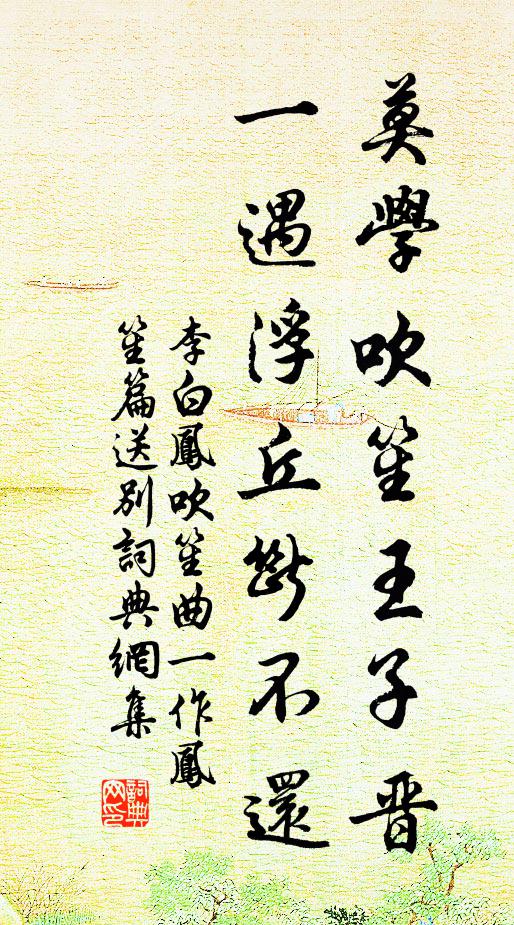 莫學吹笙王子晉
一遇浮丘斷不還
李白鳳吹笙曲一作鳳
笙篇送別詞典網集
詞典
网印